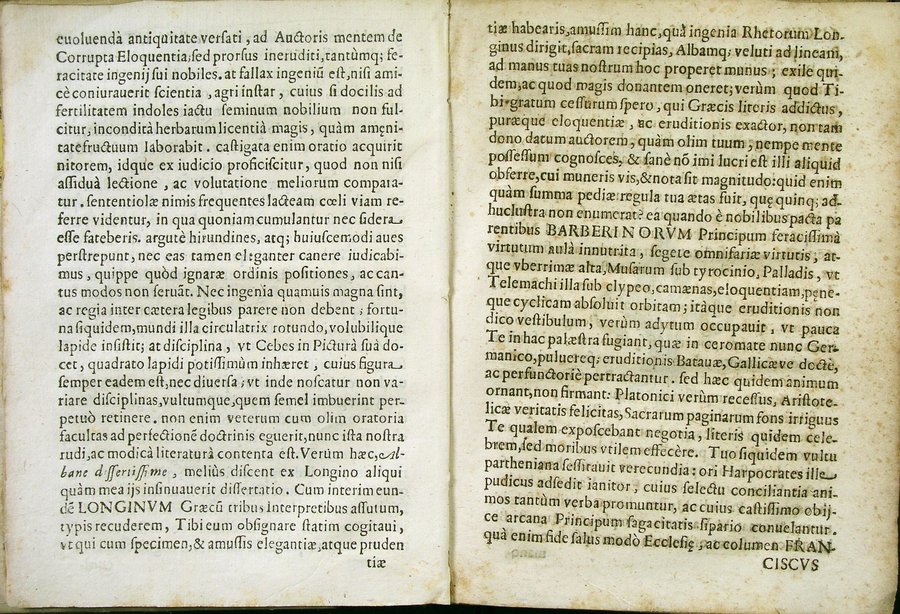 euoluendà antiquitate versati, ad Auctoris mentem de
Corrupta Eloquentia; sed prorsus ineruditi, tantùmq; fe-
racitate ingenij sui nobiles. at fallax ingeniũ est, nisi ami-
cè coniurauerit scientia, agri instar, cuius si docilis ad
fertilitatem indoles iactu seminum nobilium non ful-
citur, incondità herbarum licentià magis, quàm amęni-
tate fructuum laborabit. castigata enim oratio acquirit
nitorem, idque ex iudicio proficiscitur, quod non nisi
assiduà lectione, ac volutatione meliorum compara-
tur. sententiolæ nimis frequentes lacteam cœli viam re-
ferre videntur, in qua quoniam cumulantur nec sidera
esse fateberis. argutè hirundines, atq; huiuscemodi aues
perstrepunt, nec eas tamen eleganter canere iudicabi-
mus, quippe quòd ignaræ ordinis positiones, ac can-
tus modos non seruãt. Nec ingenia quamuis magna sint,
ac regia inter cætera legibus parere non debent; fortu-
na siquidem, mundi illa circulatrix rotundo, volubilique
lapide insistit; at disciplina, vt Cebes in Picturà suà do-
cet, quadrato lapidi potissimùm inhæret, cuius figura
semper eadem est, nec diuersa; vt inde noscatur non va-
riare disciplinas, vultumque, quem semel imbuerint per-
petuò retinere. non enim veterum cum olim oratoria
facultas ad perfectionẽ doctrinis eguerit, nunc ista nostra
rudi, ac modicà literaturà contenta est. Verùm hæc, Al-
bane dissertissime, meliùs discent ex Longino aliqui
quàm mea ijs insinuauerit dissertatio. Cum interim eun-
dẽ LONGINVM Græcũ tribus Interpretibus assutum,
typis recuderem, Tibi eum obsignare statim cogitaui,
vt qui cum specimen, & amussis elegantiæ, atque pruden
tiæ
tiæ habearis, amussim hanc, quà ingenia Rhetorum Lon-
ginus dirigit, sacram recipias, Albamq; veluti ad lineam,
ad manus tuas nostrum hoc properet munus; exile qui-
dem, ac quod magis donantem oneret; verùm quod Ti-
bi gratum cessurum spero, qui Græcis literis addictus,
puræque eloquentiæ, ac eruditionis exactor, non tam
dono datum auctorem, quàm olim tuum, nempe mente
possessum cognosces, & sanè nõ imi lucri est illi aliquid
obferre, cui muneris vis, & nota sit magnitudo: quid enim
quàm summa pediæ regula tua ætas fuit, quę quinq; ad-
huc lustra non enumerat? ea quando è nobilibus pacta pa
rentibus BARBERINORVM Principum feracissimà
virtutum aulà innutrita, segete omnifariæ virtutis; at-
que vberrimæ alta, Musarum sub tyrocinio, Palladis, vt
Telemàchi illa sub clypeo, camænas, eloquentiam, pene-
que cyclicam absoluit orbitam; itàque eruditionis non
dico vestibulum, verùm adytum occupauit, vt pauca
Te in hac palæstra fugiant, quæ in ceromate nunc Ger-
manico, puluereq; eruditionis Batauæ, Gallicæve doctè,
ac perfunctoriè pertractantur. sed hæc quidem animum
ornant, non firmant: Platonici verùm recessus, Aristote-
licæ veritatis felicitas, Sacrarum paginarum fons irriguus
Te qualem exposcebant negotia, literis quidem cele-
brem, sed moribus vtilem effecêre. Tuo siquidem vultu
partheniana sessitauit verecundia: ori Harpocrates ille
pudicus adsedit ianitor, cuius selectu conciliantia ani-
mos tantùm verba promuntur, ac cuius castissimo obij-
ce arcana Principum sagacitatis sipario conuelantur.
quà enim fide salus modò Ecclesię, ac columen FRAN-
CISCVS